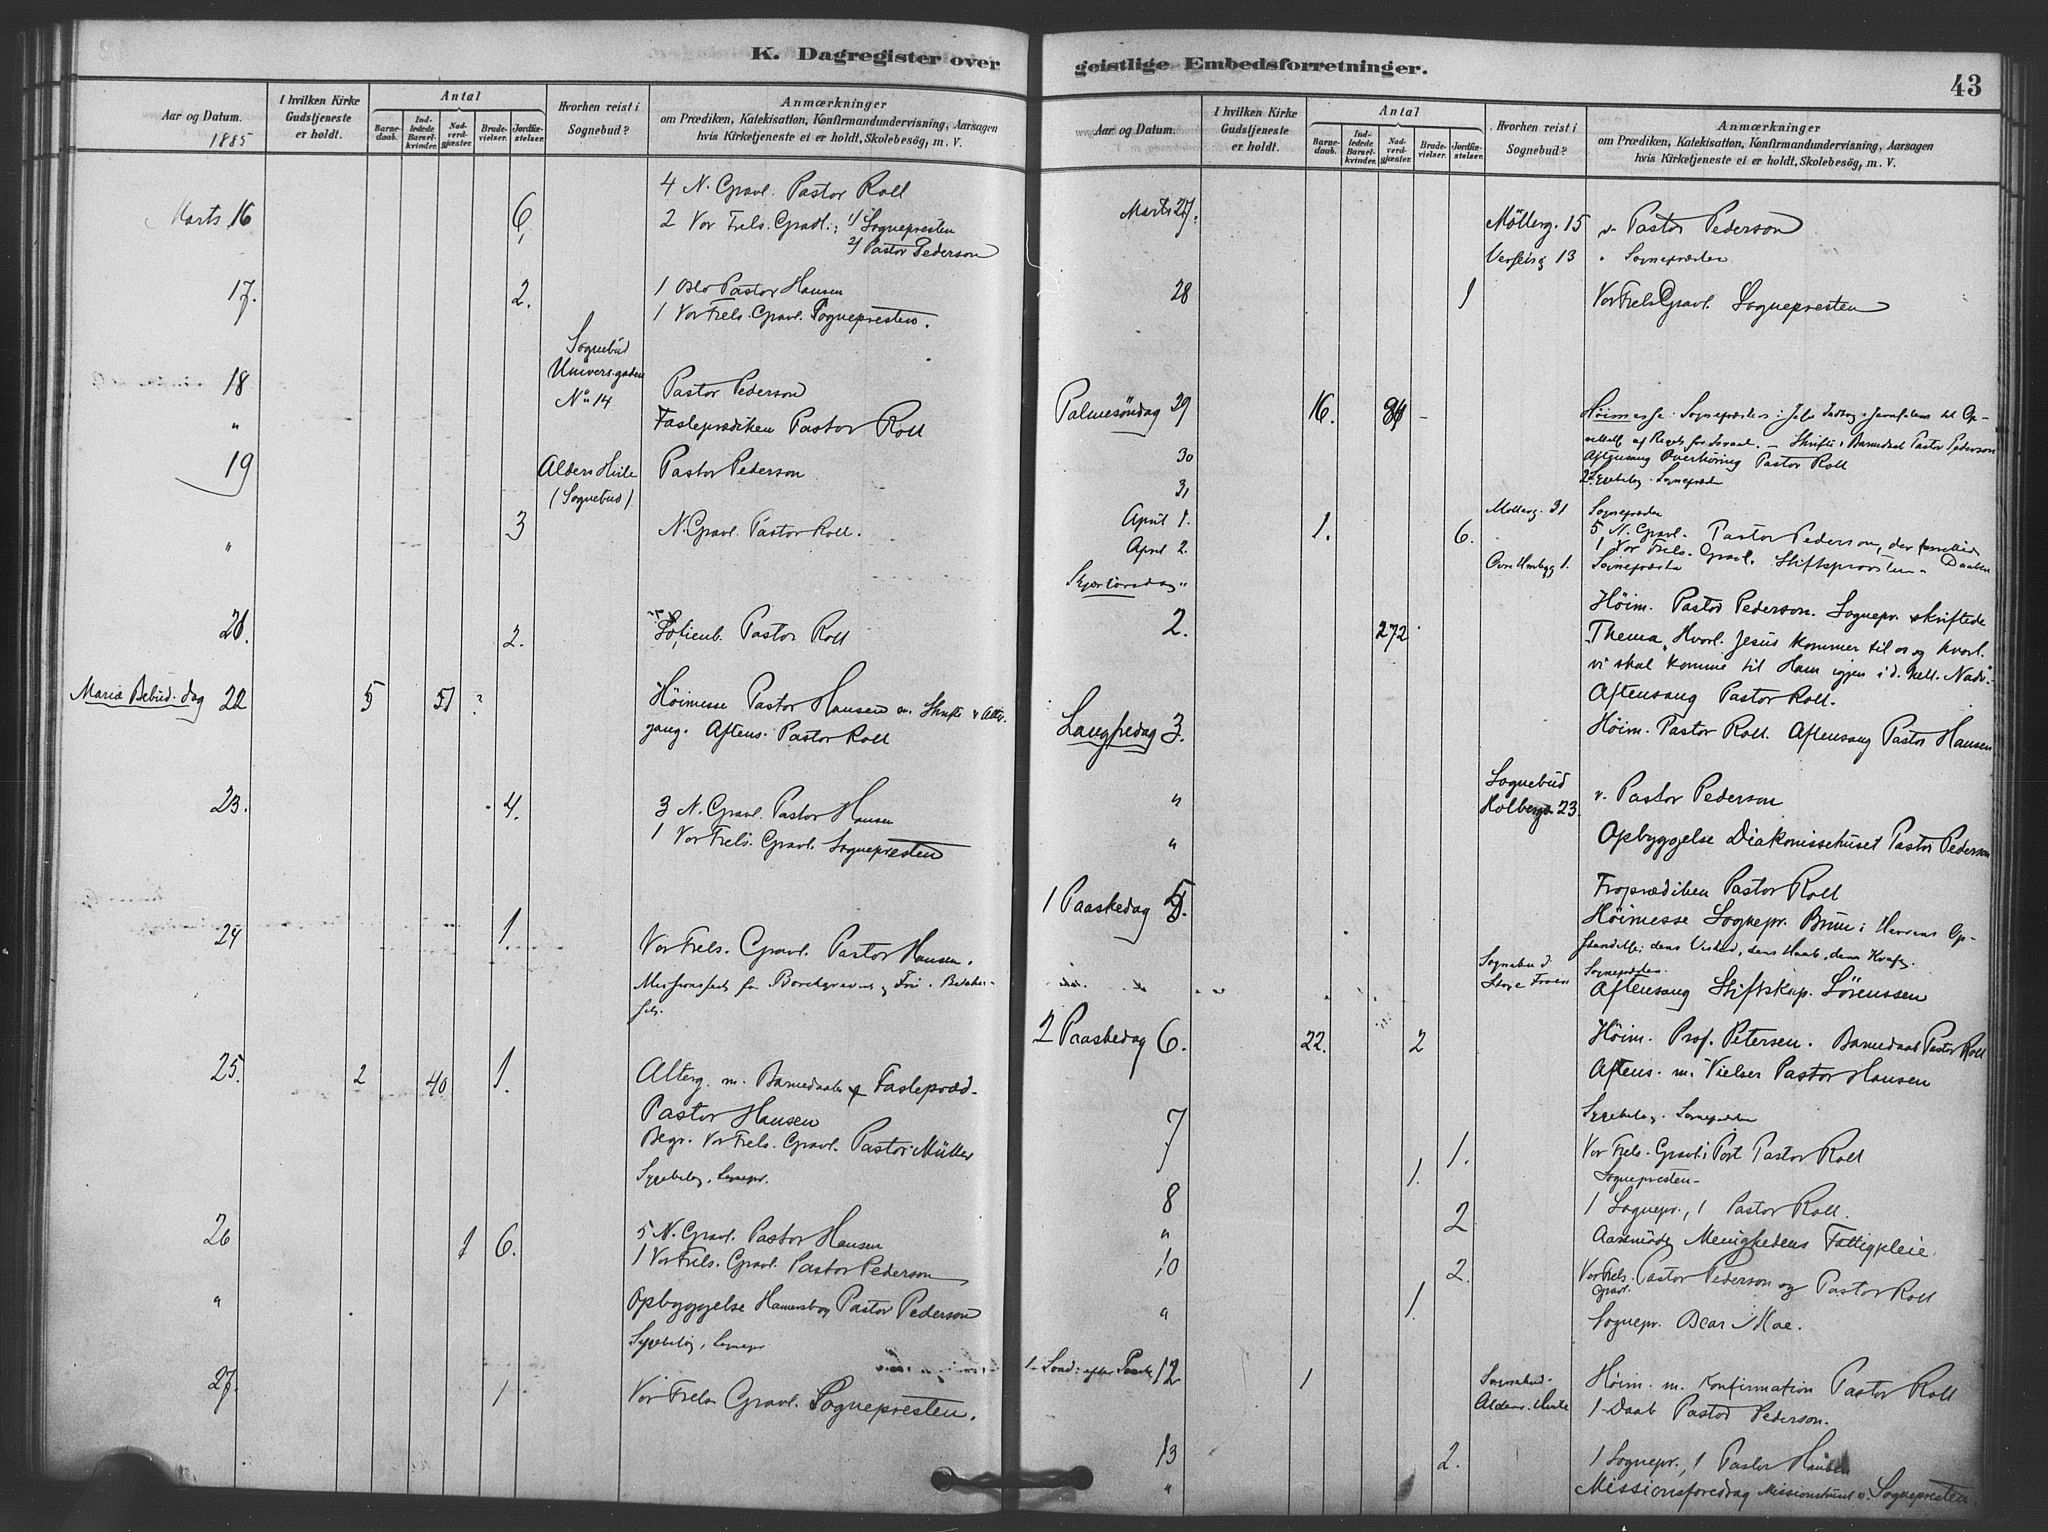 K. Dagregister over
Aar og Datum.
1885
I hvilken Kirke
Gudstjeneste
er holdt.
Antal
Barne-
daab.
Ind-
ledede
Barsel-
kvinder.
Nad-
verd-
gjæster.
Brude-
vielser.
Jordfæ-
stelser.
Hvorhen reist i
Sognebud?
Anmærkninger
om Prædiken, Katekisation, Konfirmandundervisning, Aarsagen
hvis Kirketjeneste ei er holdt, Skolebesøg, m. V.
4 N. Gravl. Pastor Roll
Marts 16 6, 2 Vor Frels. Gravl.: 1/ Sognepresten
2/ Pastor Pederson
17. 2. 1 Oslo Pastor Hansen
1 Vor Frels. Gravl. Sognepresten.
Sognebud
Univers.gaden
18 No 14 Pastor Pederson
" Fasteprædiken Pastor Roll
19 Alders Hvile Pastor Pederson
(Sognebud)
" 3 N. Gravl. Pastor Roll.
21. 2. Pastor Roll
Mariæ Bebud. dag 22 5 51 Höimesse Pastor Hansen m. Skrifte &
gang. Aftens. Pastor Roll
23. 4. 3 N. Gravl. Pastor Hansen
1 Vor Frels. Gravl. Sognepresten
24 1. Vor Frels. Gravl. Pastor Hansen.
25. 2 40 1. Alterg. m. Barnedaab & Fastepræd.
Pastor Hansen
Begr. Vor Frels. Gravl. Pastor Müller
Sygebesøg, Sognepr.
26 1 6. 5 N. Gravl. Pastor Hansen
1 Vor Frels. Gravl. Pastor Pederson
" Opbyggelse Pastor Pederson
Sygebesøg, Sognepr
27. 1 Vor Frels Gravl. Sognepresten.
geistlige Embedsforretninger.
43
Aar og Datum.
I hvilken Kirke
Gudstjeneste
er holdt.
Antal
Barne-
daab.
Ind-
ledede
Barsel-
kvinder.
Nad-
verd-
gjæster.
Brude-
vielser.
Jordfæ-
stelser.
Hvorhen reist i
Sognebud?
Anmærkninger
om Prædiken, Katekisation, Konfirmandundervisning, Aarsagen
hvis Kirketjeneste ei er holdt, Skolebesøg, m. V.
Marts 27. Mölterg. 15 v. Pastor Pederson
13 " Sognepræsten
28 1 Vor Frels Gravl. Sognepresten
Palmesöndag 29 16. Höimesse: Sognepræsten:
Skrifte & Barnedaab Pastor Pederson
30 Aftensang Overhöring Pastor Roll
31 2 Sygebesøg. Sognepræsten
April 1. Mollerg. 31 Sognepræsten
April 2. 1. 6. 5 N. Gravl. Pastor Pederson, der forrettede
1 Vor Frels. Gravl. Stiftsprovsten Daaben
1. Sognepræsten
Skjærtorsdag "
2. 272 Höim. Pastor Pederson. Sognepr. skriftede
Thema, Hvorl. Jesus kommer til os og hvorl.
vi skal komme til Ham igjen i d. hell. Nadv.
Aftensang Pastor Roll.
Langfredag 3. Höim. Pastor Roll. Aftensang Pastor Hansen
Sognebud
" Holbergs. 23. v. Pastor Pederson
" Opbyggelse Diakonissehuset Pastor Pederson
Froprædiken Pastor Roll
1 Paaskedag 5. Höimesse Sognepr. Bruun: Herrens Op-
standelse; dens Vished, dens Haab, dens Kraft.
Sognebud. Sognepræsten.
Store Frøen Aftensang Stiftskap. Sörenssen
2 Paaskedag 6. 22. 2 Höim. Prof. Petersen. Barnedaab Pastor Roll
Aftens. m. Vielser Pastor Hansen
7 Sygebesøg. Sognepræsten
1. Vor Frels. Gravl: Port Pastor Roll
1. Sognepresten
8 2 1 Sognepr., 1 Pastor Roll.
" Aarsmöde Menighedens Fattigpleie.
10 2. Vor Frels. Pastor Pederson og Pastor Roll
Gravl.
" 1. Sognepr.
1. Sönd: efter Paaske 12 1 Sognebud. Höim. m. Konfirmation Pastor Roll
Alders. Hvile 1 Daab Pastor Pederson.
13 2. 1 Sognepr., 1 Pastor Hansen
" Missionsforedrag Missionshuset v. Sognepresten.